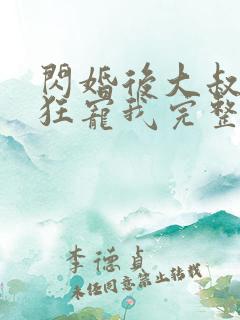 閃婚後大叔
狂寵我完整
李德貞
未經同意禁止轉載